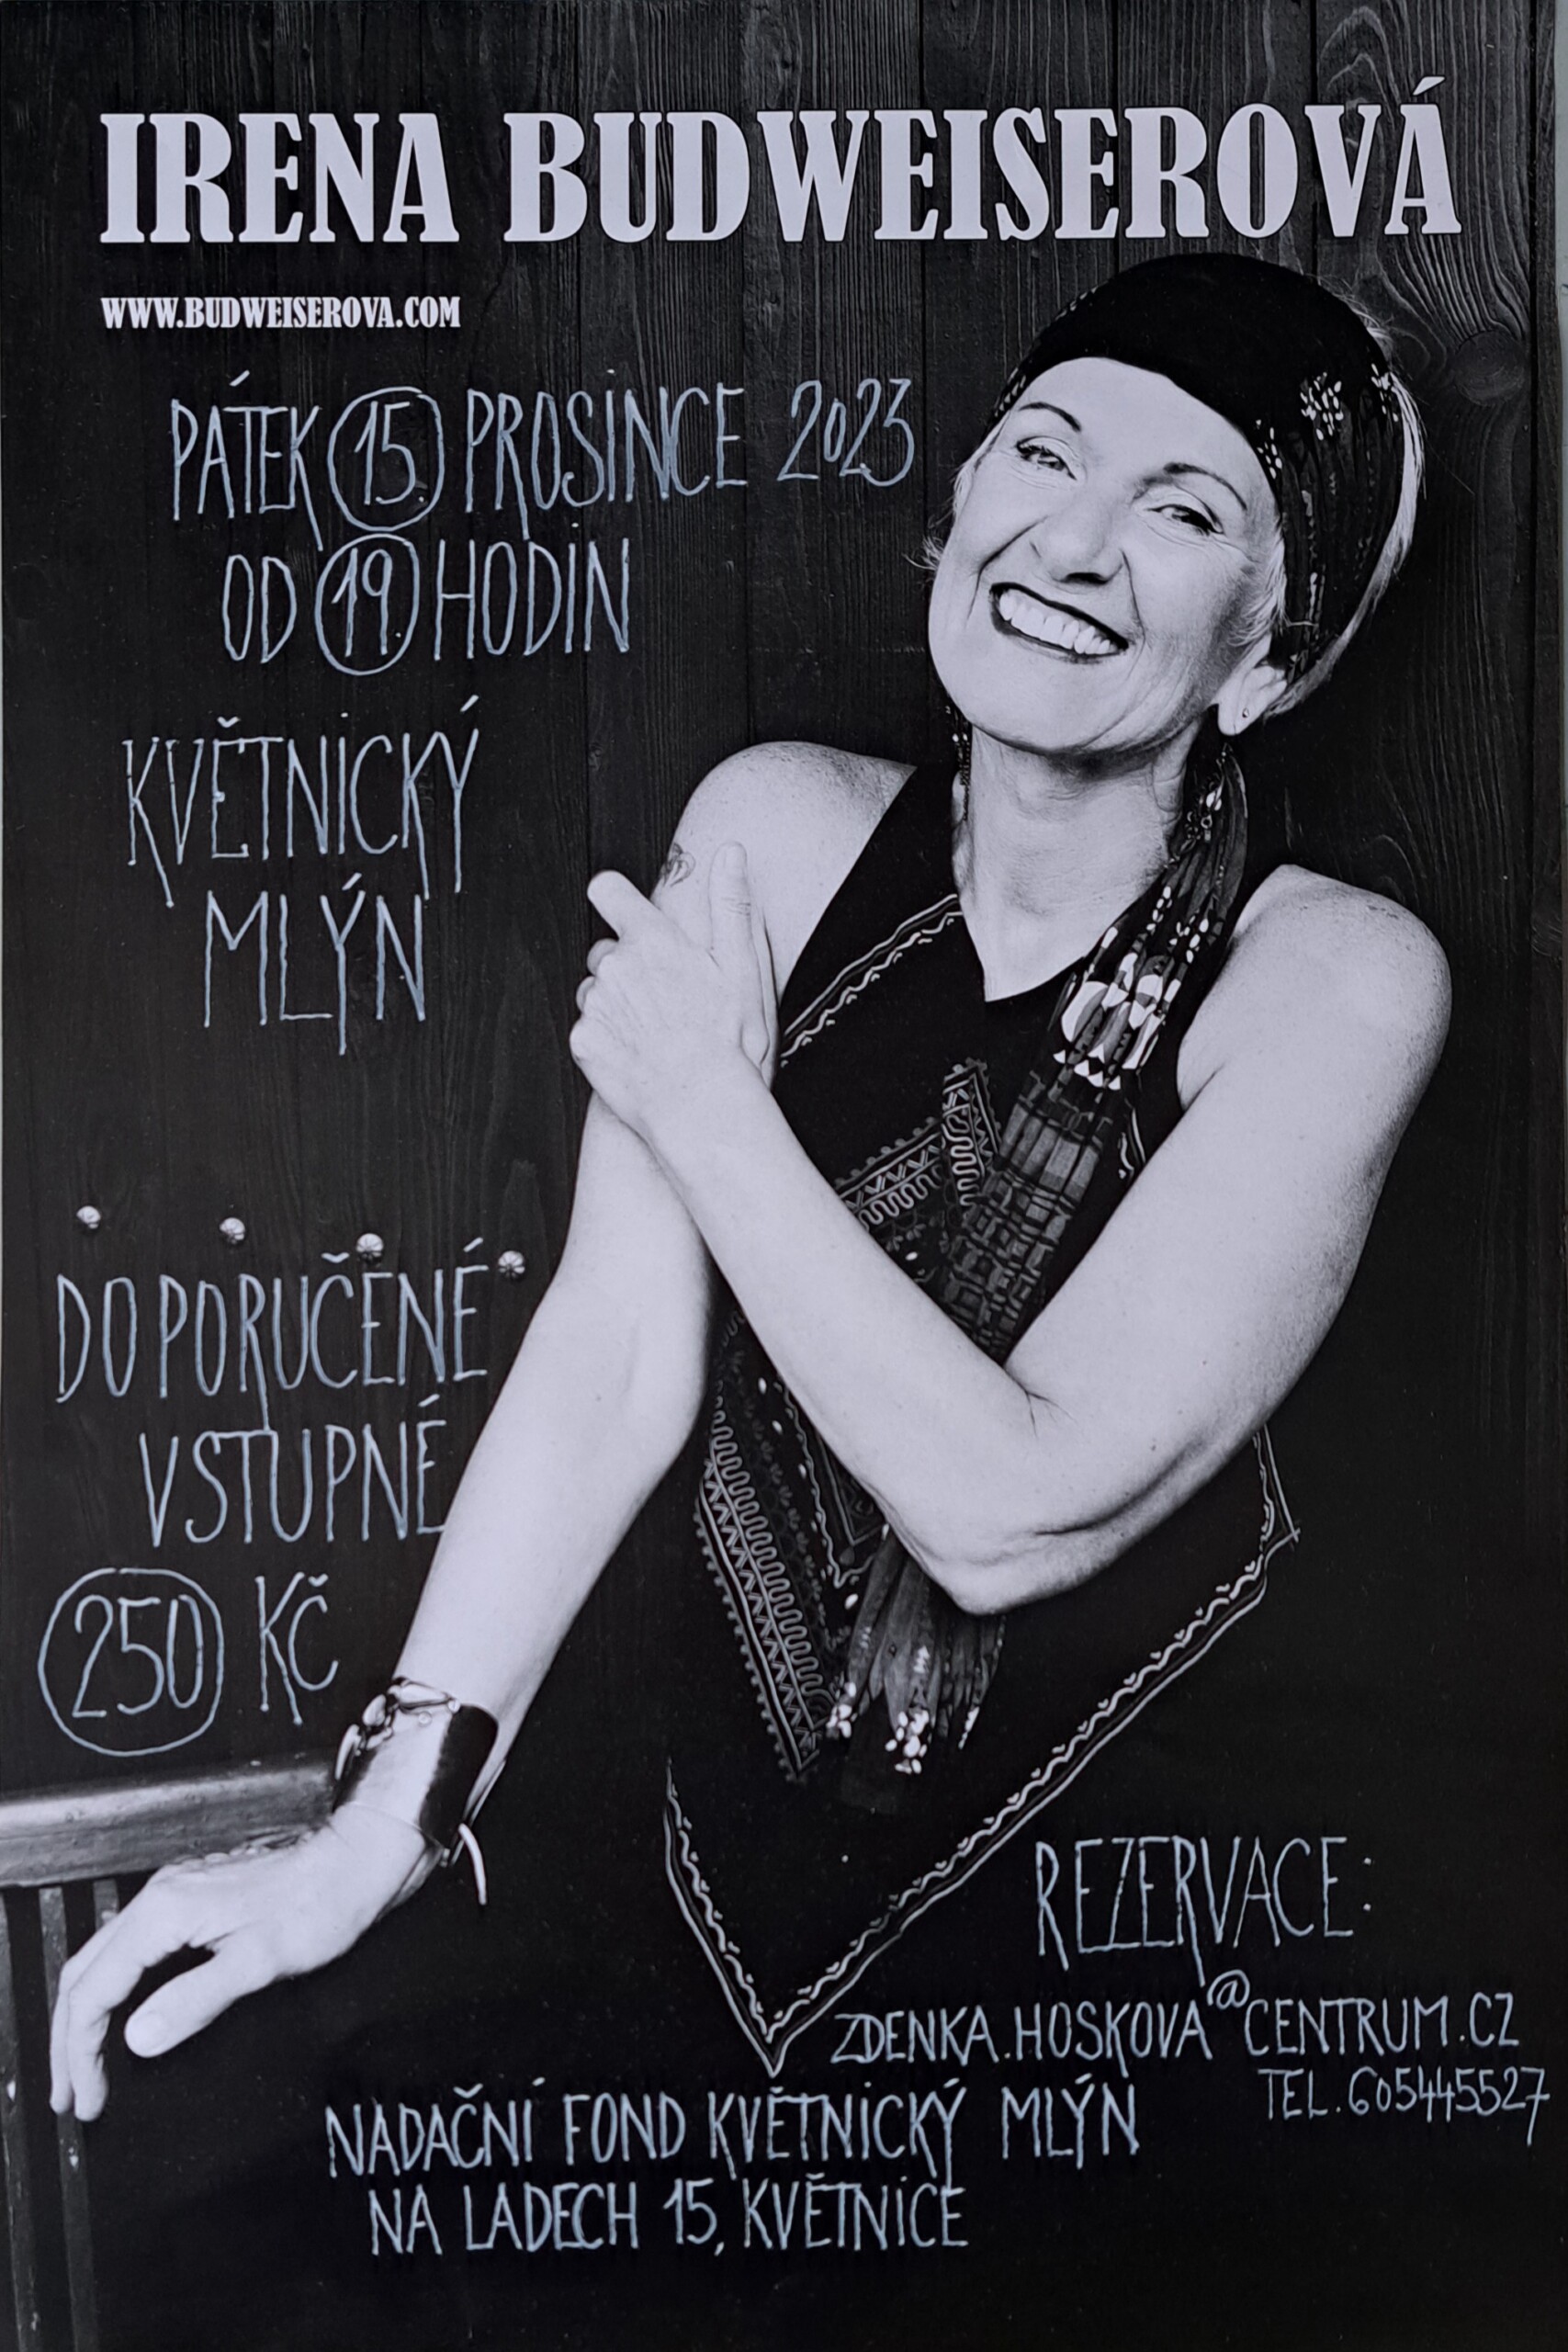 IRENA BUDWEISEROVÁ
WWW.BUDWEISEROVA.COM
PÁTEK 15. PROSINCE 2023
OD 19 HODIN
KVĚTNICKÝ
MLÝN
DOPORUČENÉ
VSTUPNÉ
250 KČ
REZERVACE:
ZDENKA.HOSKOVA@CENTRUM.CZ
TEL. 605445527
NADAČNÍ FOND KVĚTNICKÝ MLÝN
NA LADECH 15, KVĚTNICE